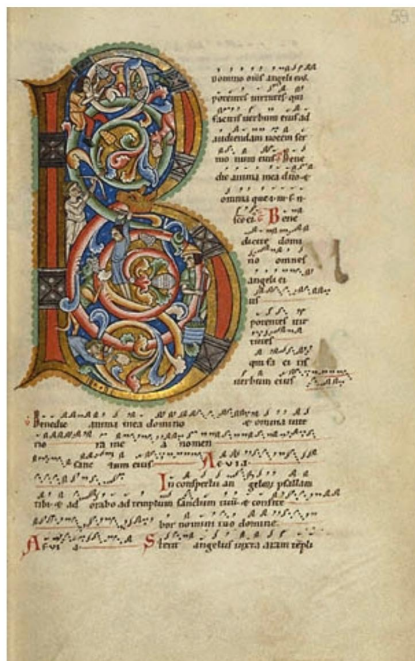 59
B
domino om̄s angeli eius
potentes uirtutes qui
facitis uerbum eius ad
audiendam uocem ser
mo num eius Bene
dic anima mea dn̄o &
omnia que
Bene
dicite domi
no omnes
angeli ei
us
potentes uir
tutes
qui fa ci tis
uerbum eius
Benedic anima mea domino & omnia inte
no ra me a nomen
sanc tum eius Aeuia
In conspectu an gelorum psallam
tibi & ad orabo ad templum sanctum tuum & confite
bor nomini tuo domine
Aeui a Stetit angelus iuxta aram templi